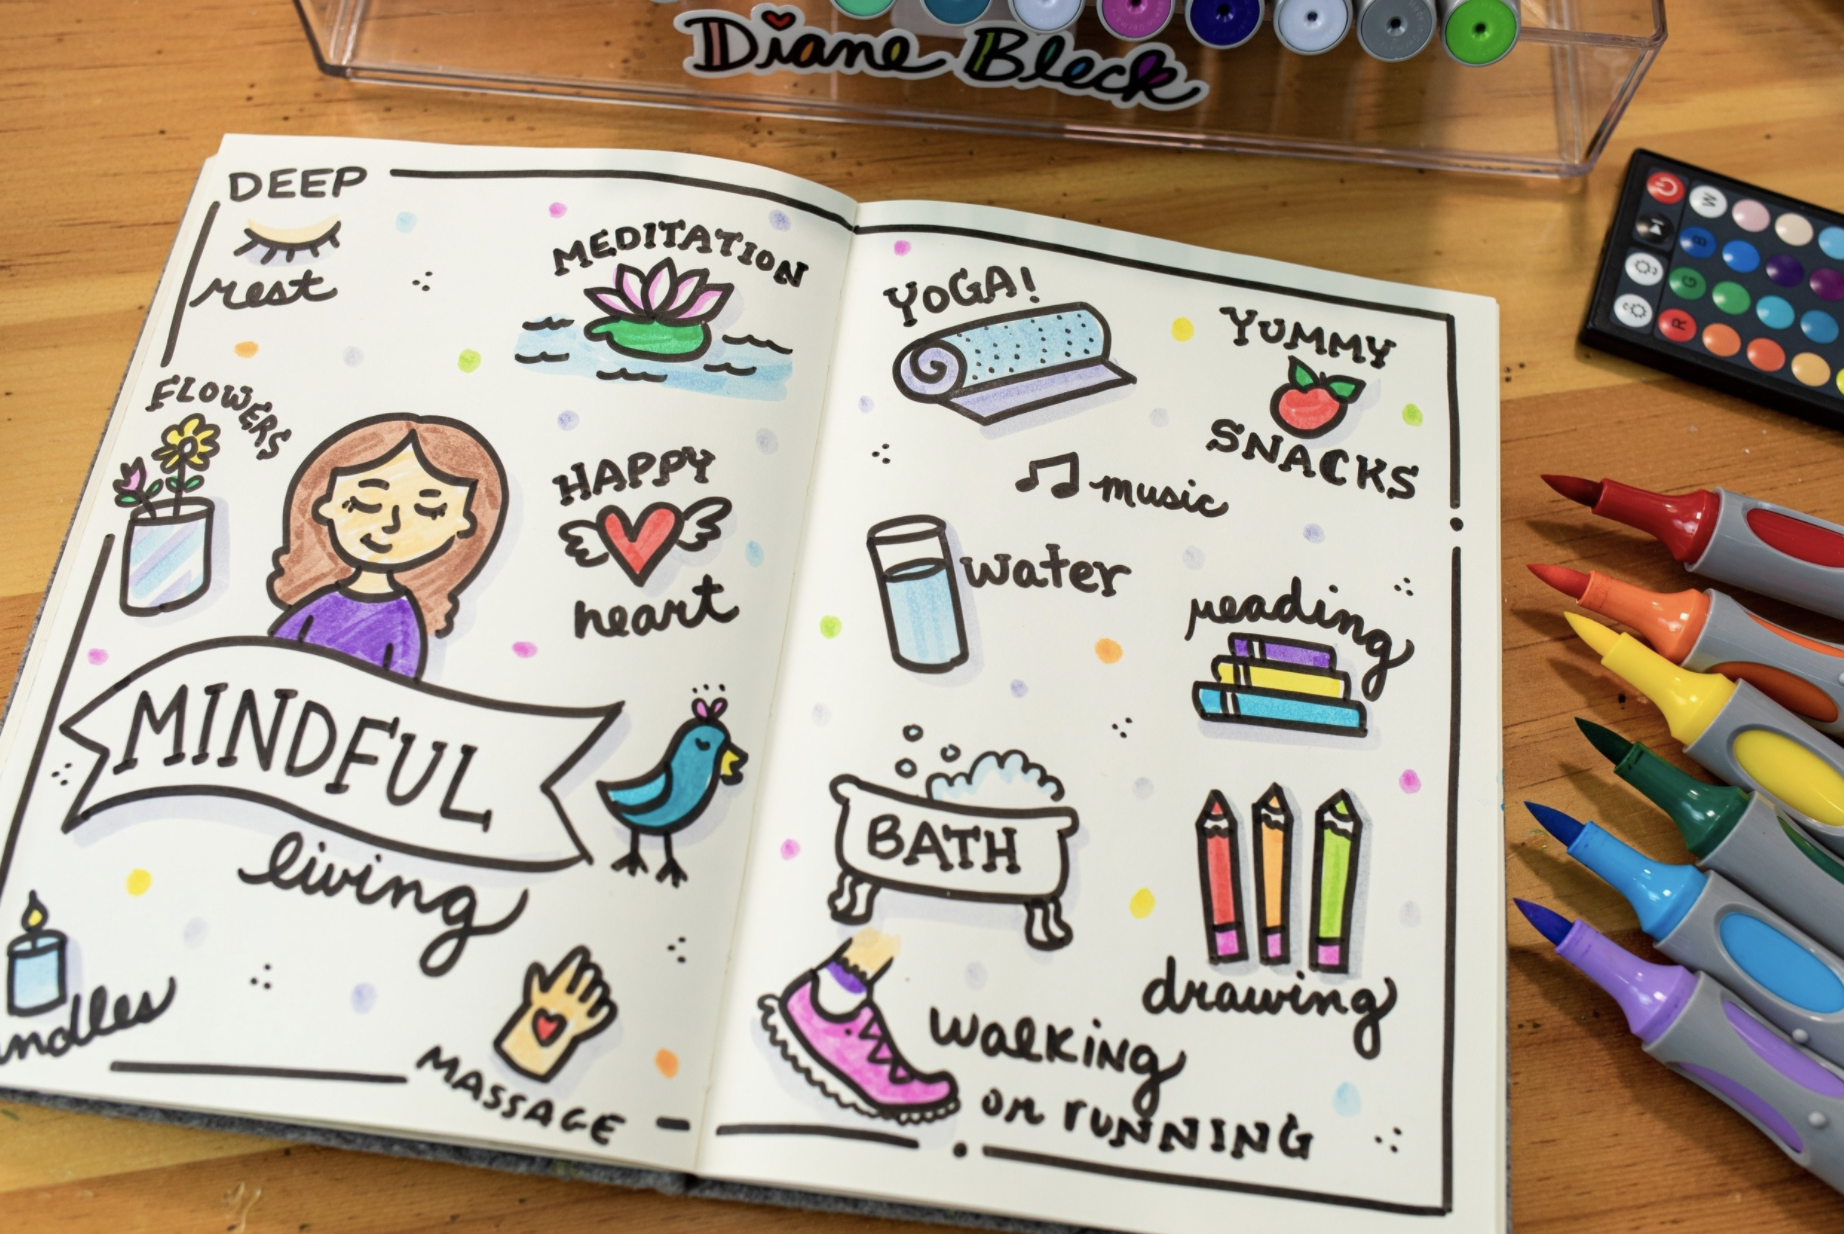 Diane Bleck
DEEP
rest
MEDITATION
FLOWERS
HAPPY
heart
MINDFUL
living
ndles
MASSAGE
YOGA!
YUMMY
SNACKS
music
water
reading
BATH
drawing
WALKING
or RUNNING
W
B
G
R